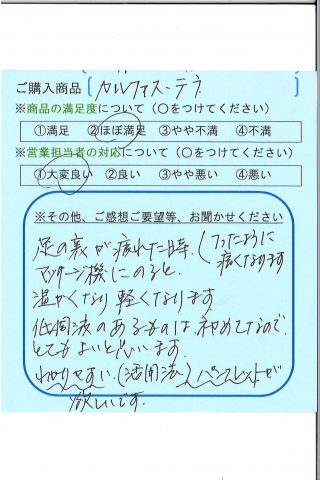 ご購入商品 〔カルファス・テラ
※商品の満足度について（○をつけてください）
①満足 ②ほぼ満足 ③やや不満 ④不満
※営業担当者の対応について（○をつけてください）
①大変良い ②良い ③やや悪い ④悪い
※その他、ご感想ご要望等、お聞かせください
足の裏が疲れた時、（つったように
痛くなります
マッサージ機にのると、
温かくなり軽くなります
低周波のあるものは初めてなので、
とてもよいと思います。
わかりやすい、（活用法）パンフレットが
欲しいです。